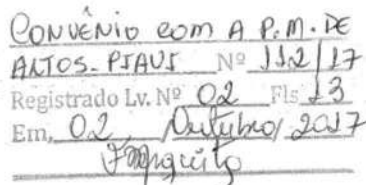 CONVÊNIO COM A P.M. DE
ALTOS-PIAUÍ Nº 112/17
Registrado Lv. Nº 02 Fls 13
Em, 02 / Outubro / 2017